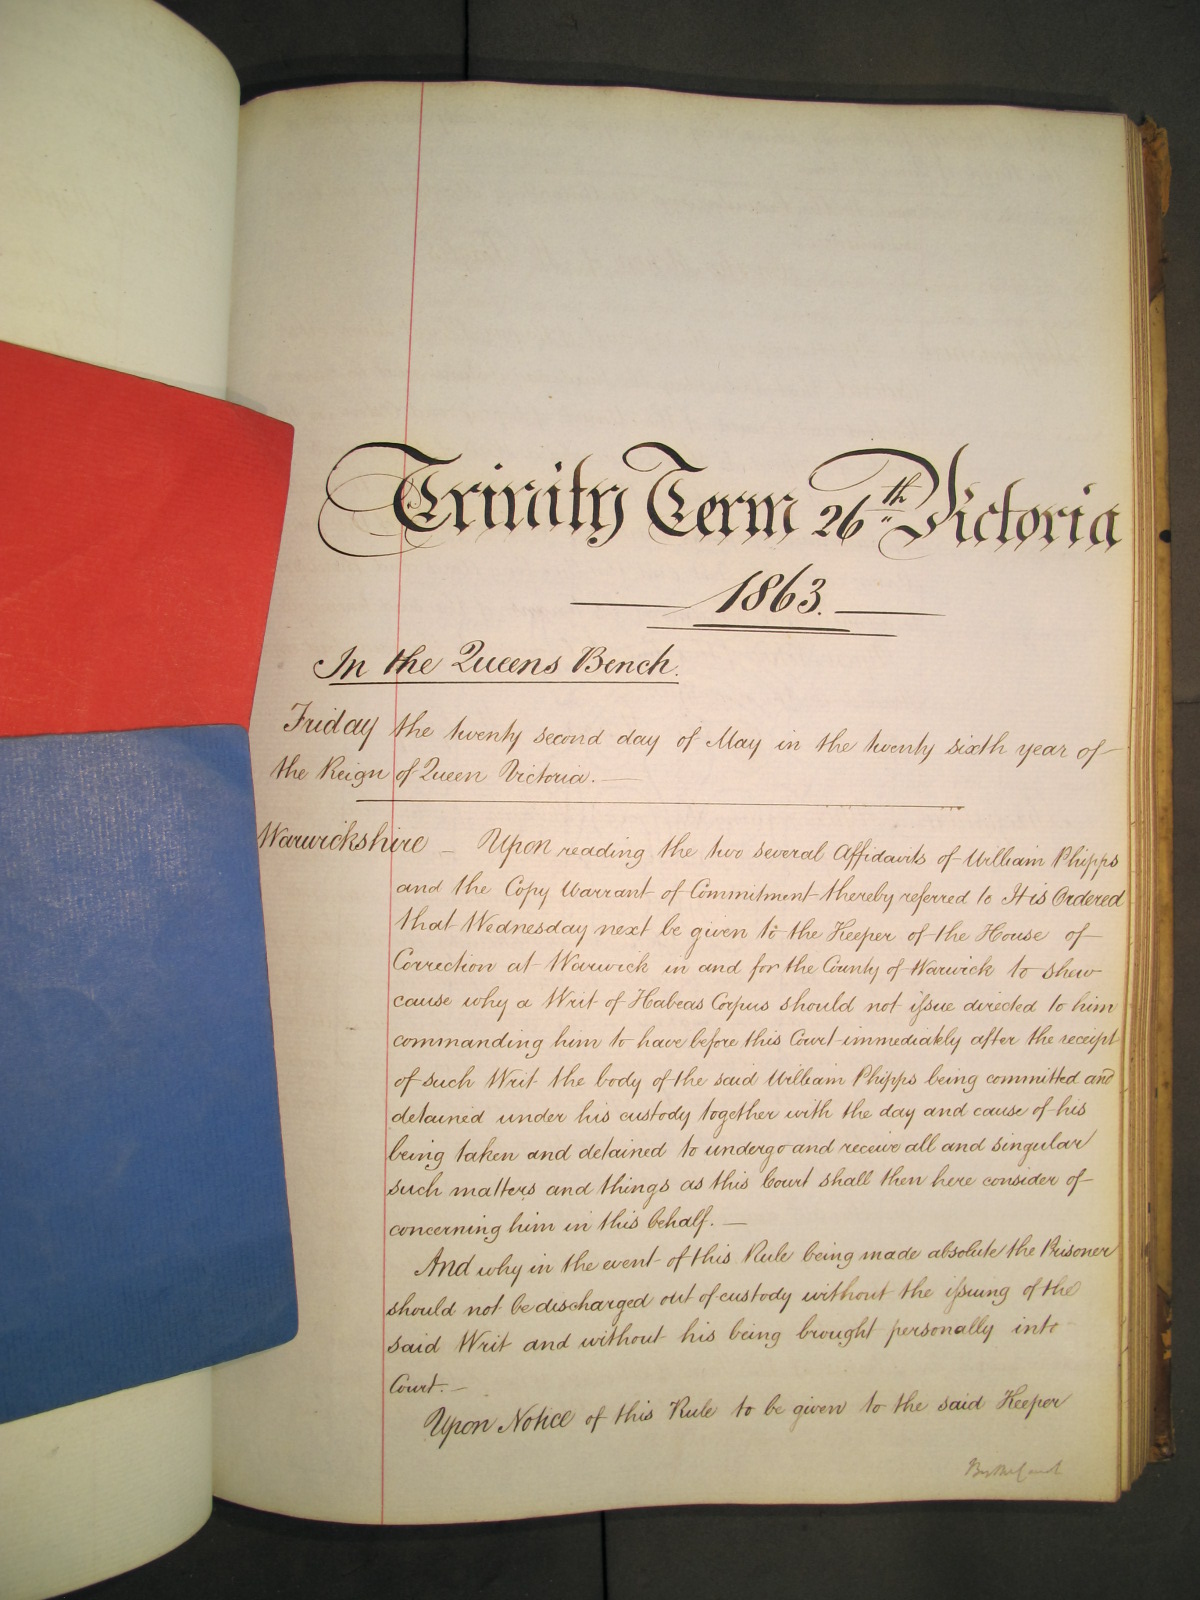 Trinity Term 26th Victoria
1863.
In the Queens Bench.
Friday the twenty second day of May in the twenty sixth year of
the Reign of Queen Victoria.
Warwickshire – Upon reading the two several Affidavits of William Phipps
and the Copy Warrant of Commitment thereby referred to It is Ordered
that Wednesday next be given to the Keeper of the House of
Correction at Warwick in and for the County of Warwick to shew
cause why a Writ of Habeas Corpus should not issue directed to him
commanding him to have before this Court immediately after the receipt
of such Writ the body of the said William Phipps being committed and
detained under his custody together with the day and cause of his
being taken and detained to undergo and receive all and singular
such matters and things as this Court shall then here consider of
concerning him in this behalf. –
And why in the event of this Rule being made absolute the Prisoner
should not be discharged out of custody without the issuing of the
said Writ and without his being brought personally into
Court. –
Upon Notice of this Rule to be given to the said Keeper
By the Court